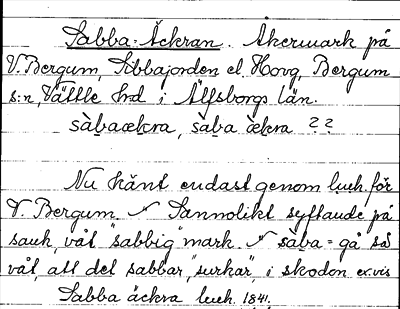 Sabba-Äckran. Åkermark på
V. Bergum, Sibbajorden el. Hovg, Bergum
s:n, Vättle hrd i Älfsborgs län.
sàbaækra, sàba ækra ??
Nu känt endast genom luch. för
V. Bergum. Sannolikt syftande på
sauk, våt "sabbig" mark. sàba = gå så
våt, att det sabbar, "surkar", i skodon ex.vis
Sabba äckra luch. 1841.